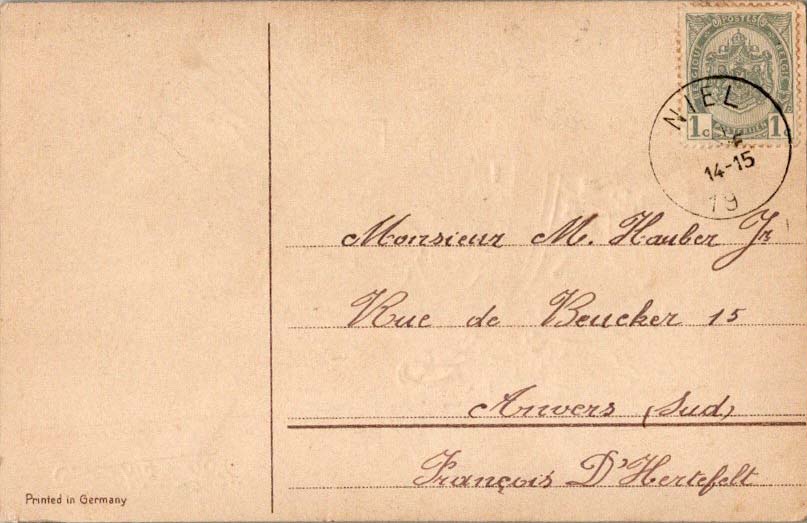 POSTES
BELGIQUE
BELGIE
POSTERIJEN
1c 1c
NIEL
14-15
19
Monsieur M. Hauber Jr
Rue de Beucker 15
Anvers (Sud)
François D'Hertefelt
Printed in Germany